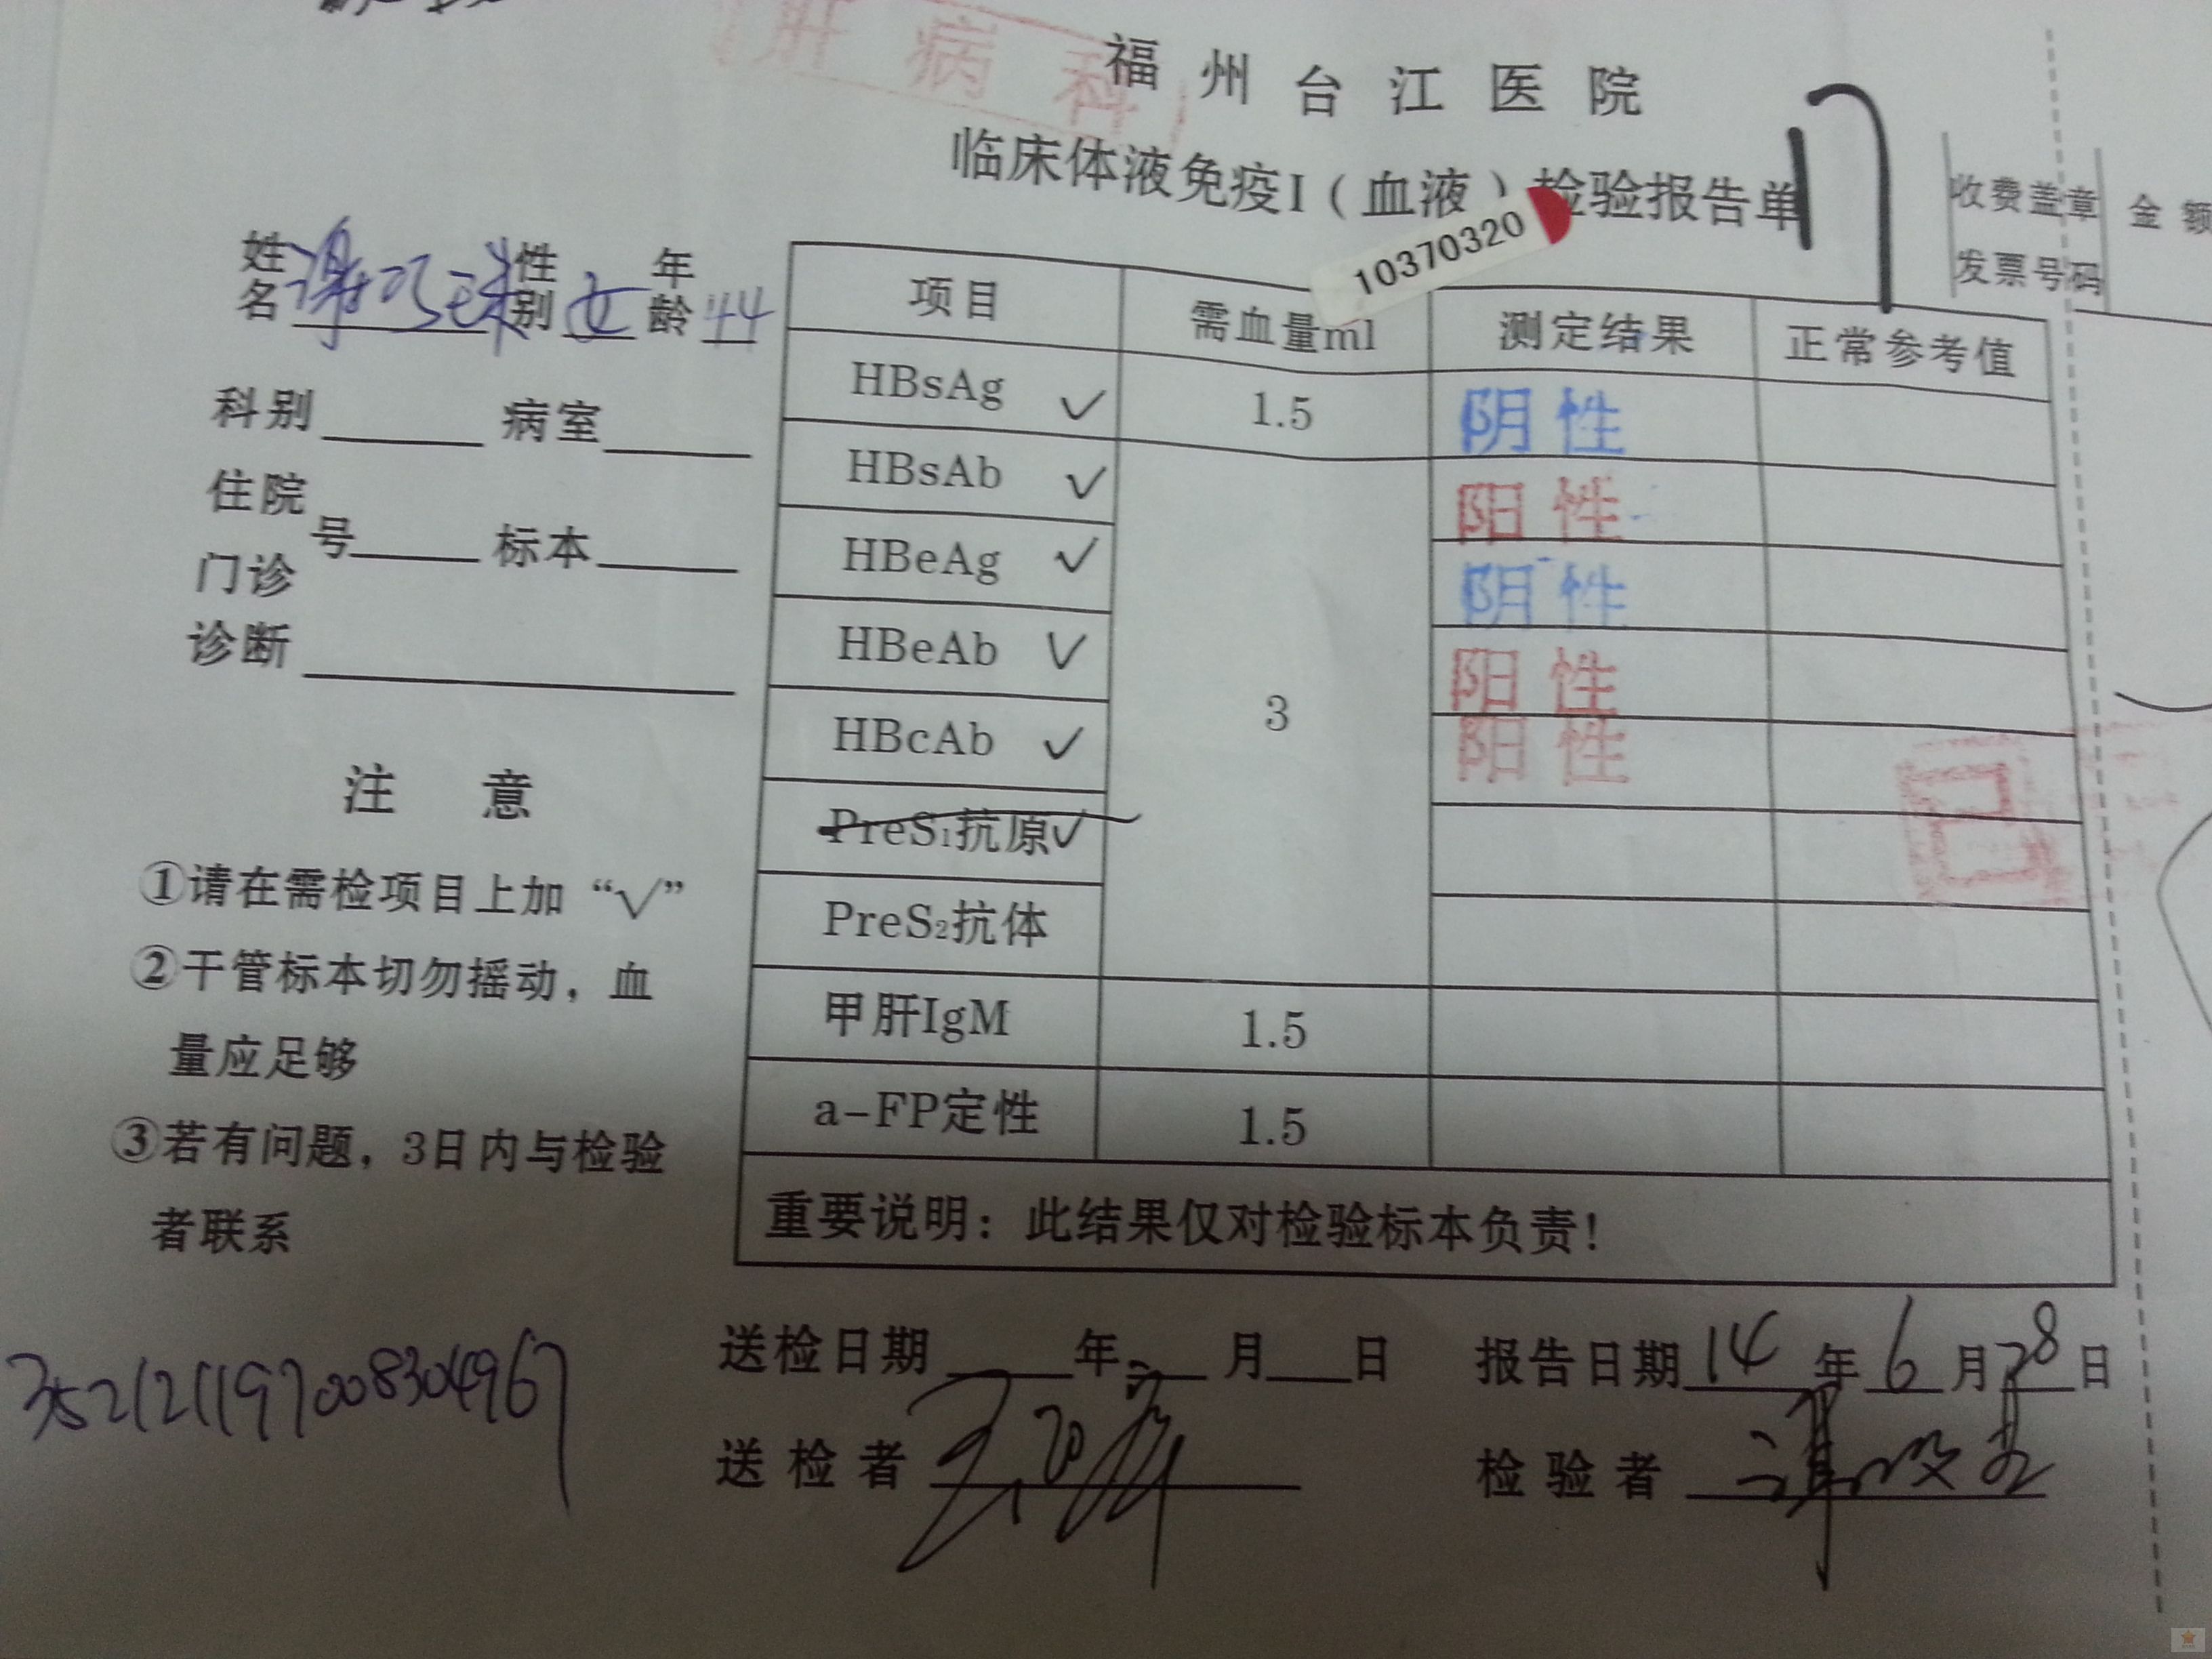 肝病科
福州台江医院
临床体液免疫I（血液）检验报告单
10370320
17
收费盖章 金额
发票号码
姓名 谢巧球 性别 女 年龄 44
科别 病室
住院
号 标本
门诊
诊断
注 意
①请在需检项目上加“√”
②干管标本切勿摇动，血
量应足够
③若有问题，3日内与检验
者联系
项目 需血量ml 测定结果 正常参考值
HBsAg √ 1.5 阴性
HBsAb √ 3 阳性
HBeAg √ 阴性
HBeAb √ 阳性
HBcAb √ 阳性
PreS₁抗原√
PreS₂抗体
甲肝IgM 1.5
a-FP定性 1.5
重要说明：此结果仅对检验标本负责！
送检日期 年 月 日 报告日期 14 年 6 月 28 日
送检者 检验者
352121197008304967